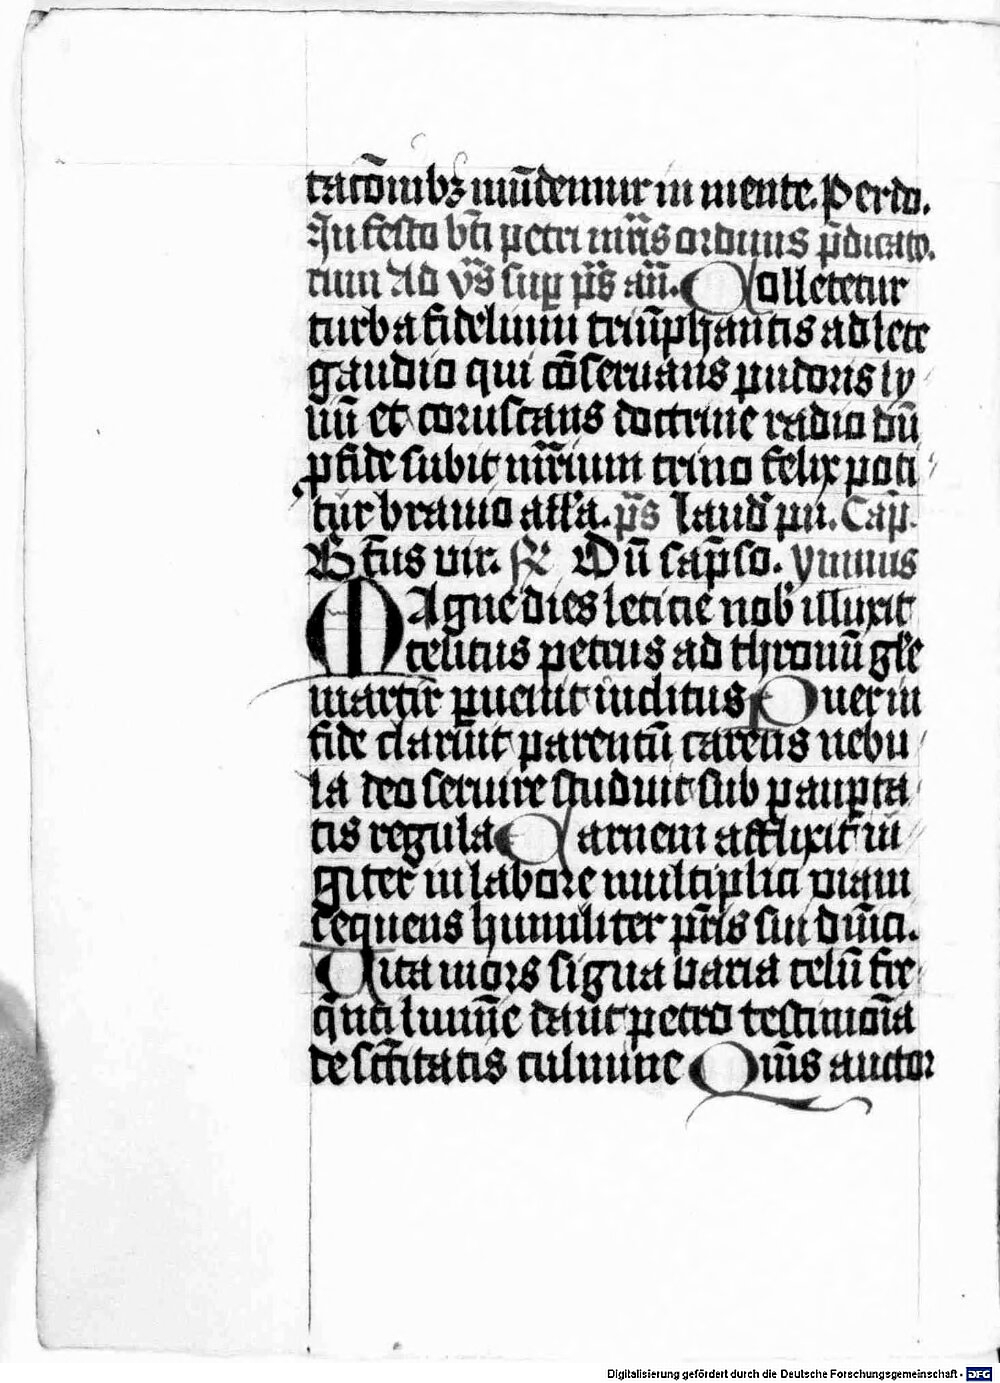 tacōnibꝫ mūdemur in mente. Per do.
In festo bti petri mr̄is ordinis p̄dicato.
rum Ad vs̄ sup̱ ps̄ añ. Colletetur
turba fidelium triūphantis ad lete
gaudio qui cōseruans pudoris ly
liū et coruscans doctrine radio dū
p fide subit mr̄ium trino felix poti
tur brauio all'a. ps̄ Laud' pu. Cap̄.
Btūs uir. ℟ Dū sap̄so. ymnus
MAgne dies leticie nob' illuxit
celitus petrus ad thronū gl'e
martir p̱uenit inclitus Puer in
fide claruit parentū carens nebu
la deo seruire studuit sub paup̱ta
tis regula Carnem afflixit iu
giter in labore multiplici viam
sequens humiliter pr̄is sui dn̄ici.
Vita mors signa varia celū fre
q̄nti lumīe dant petro testimōia
de sc̄titatis culmine Qūis auctor
Digitalisierung gefördert durch die Deutsche Forschungsgemeinschaft - DFG